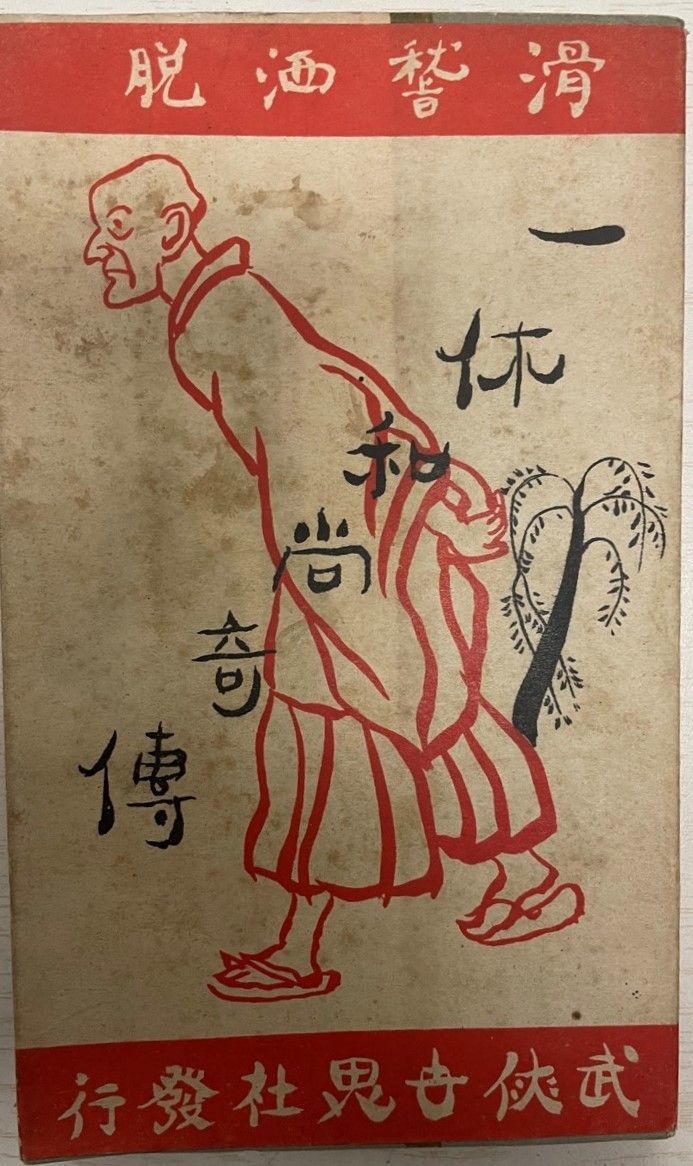 滑稽洒脱
一休和尚奇傳
武俠世界社發行